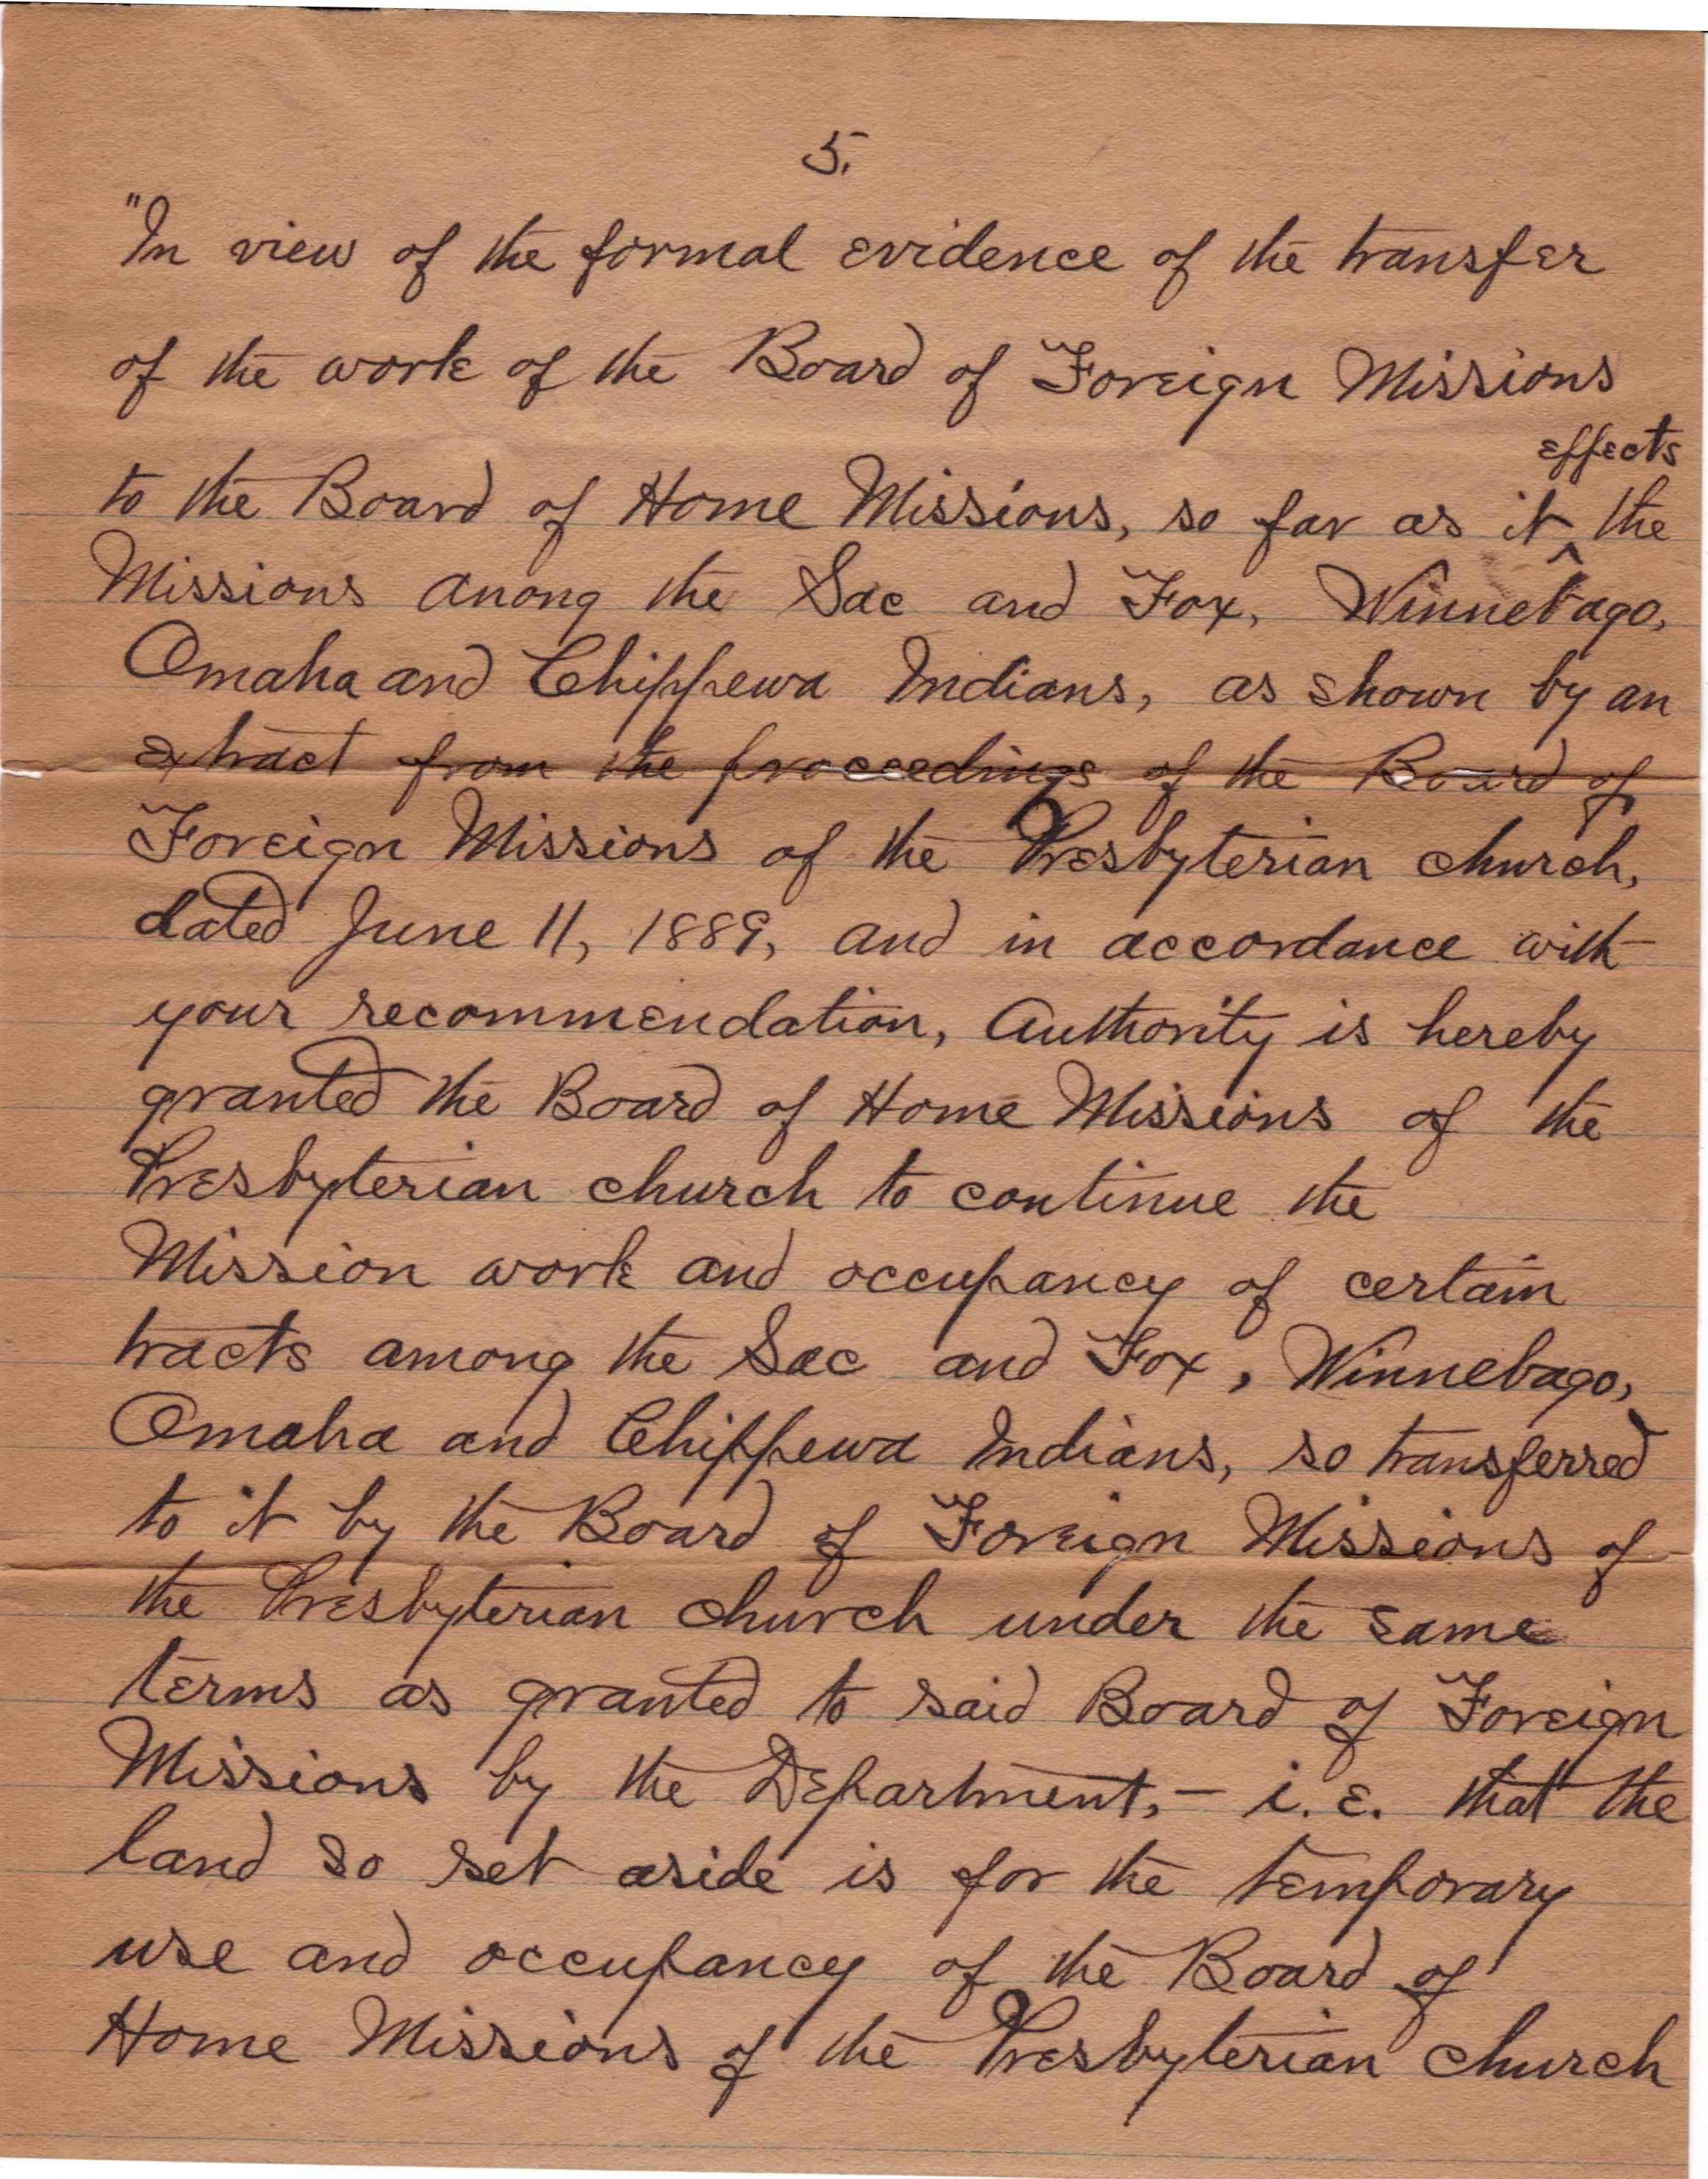 5.
"In view of the formal evidence of the transfer
of the work of the Board of Foreign Missions
effects
to the Board of Home Missions, so far as it ^ the
Missions among the Sac and Fox, Winnebago,
Omaha and Chippewa Indians, as shown by an
extract from the proceedings of the Board of
Foreign Missions of the Presbyterian church,
dated June 11, 1889, and in accordance with
your recommendation, Authority is hereby
granted the Board of Home Missions of the
Presbyterian church to continue the
Mission work and occupancy of certain
tracts among the Sac and Fox, Winnebago,
Omaha and Chippewa Indians, so transferred
to it by the Board of Foreign Missions of
the Presbyterian church under the same
terms as granted to said Board of Foreign
Missions by the Department,- i.e. that the
land so set aside is for the temporary
use and occupancy of the Board of
Home Missions of the Presbyterian church